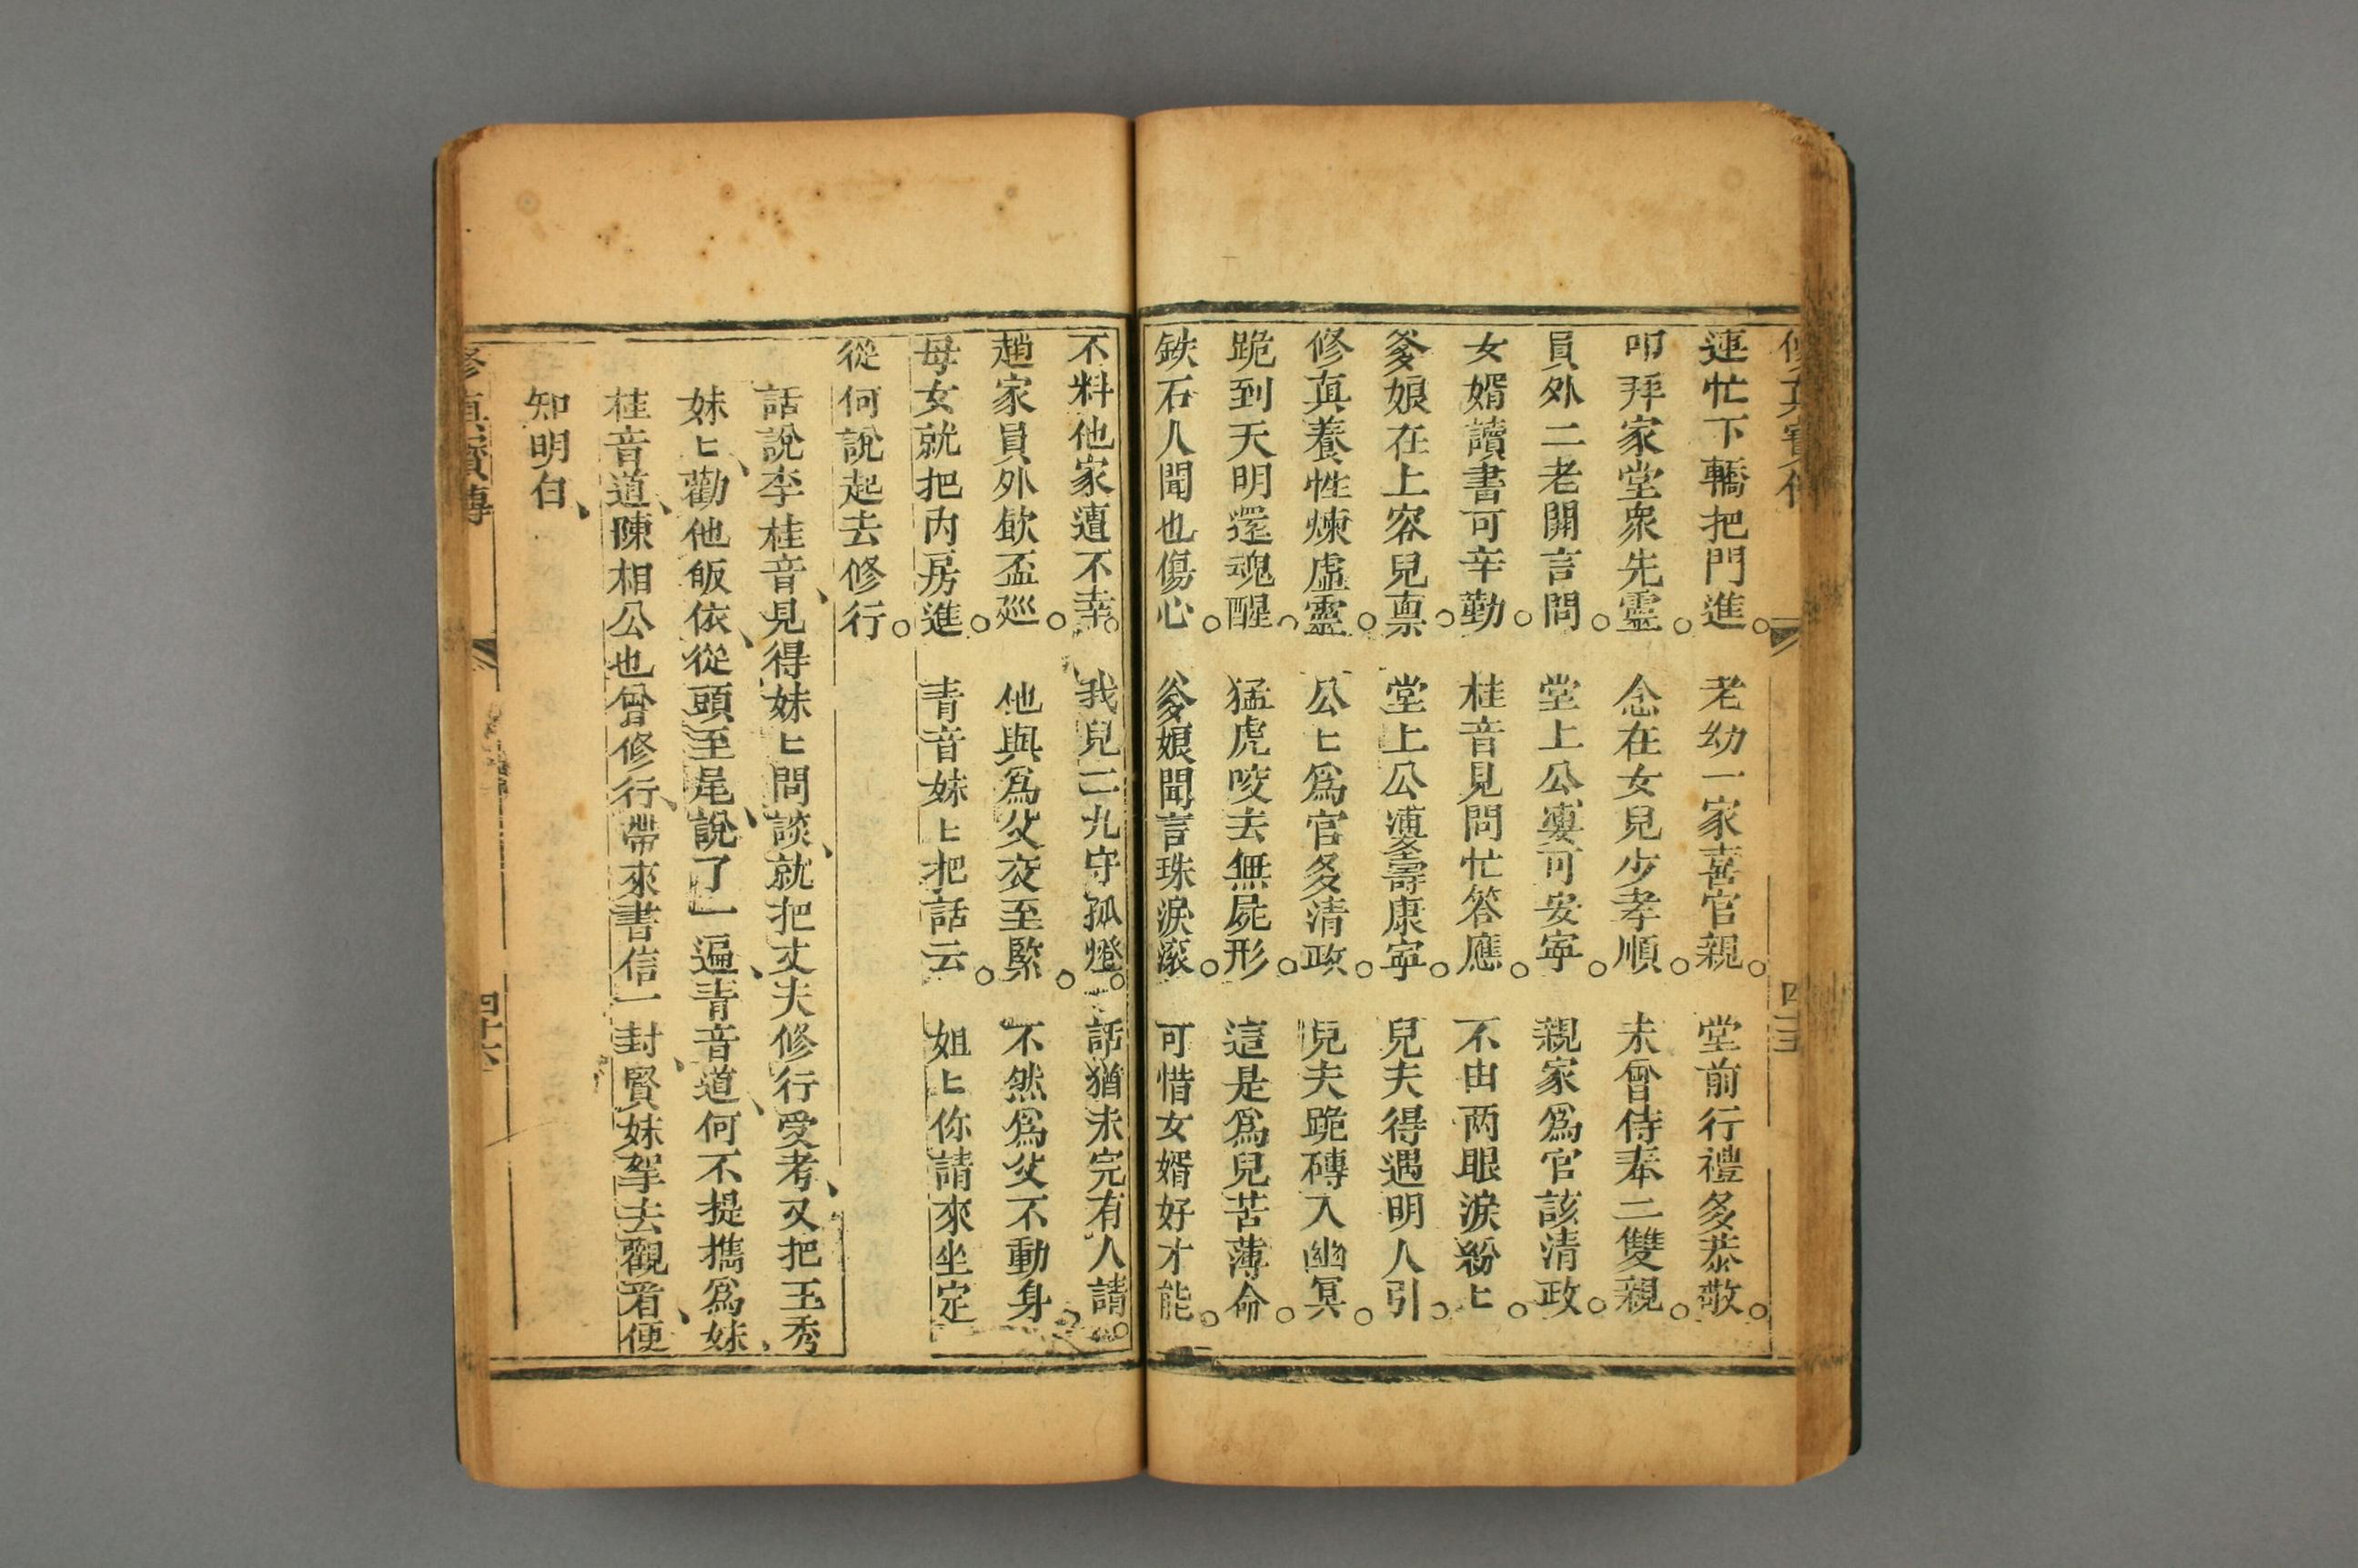 修真寶傳 四十五
連忙下轎把門進。老幼一家喜官親。堂前行禮多恭敬。
叩拜家堂衆先靈。念在女兒少孝順。未曾侍奉二雙親。
員外二老開言問。堂上公婆可安寧。親家爲官該清政。
女婿讀書可辛勤。桂音見問忙答應。不由两眼淚紛匕。
爹娘在上容兒禀。堂上公婆壽康寧。兒夫得遇明人引。
修真養性煉虛靈。公匕爲官多清政。兒夫跪磚入幽冥。
跪到天明還魂醒。猛虎咬去無屍形。這是爲兒苦薄命。
鉄石人聞也傷心。爹娘聞言珠淚滚。可惜女婿好才能。
不料他家遭不幸。我兒二九守孤燈。話猶未完有人請。
趙家員外飲盃廵。他與爲父交至緊。不然爲父不動身。
母女就把内房進。青音妹匕把話云。姐匕你請來坐定
從何說起去修行。
話說李桂音、見得妹匕問談、就把丈夫修行受考、又把王秀
妹匕、勸他皈依、從頭至尾、說了一遍、青音道、何不提攜爲妹、
桂音道、陳相公也曾修行、帶來書信一封、賢妹拏去觀看、便
知明白、
修真寶傳 四十六